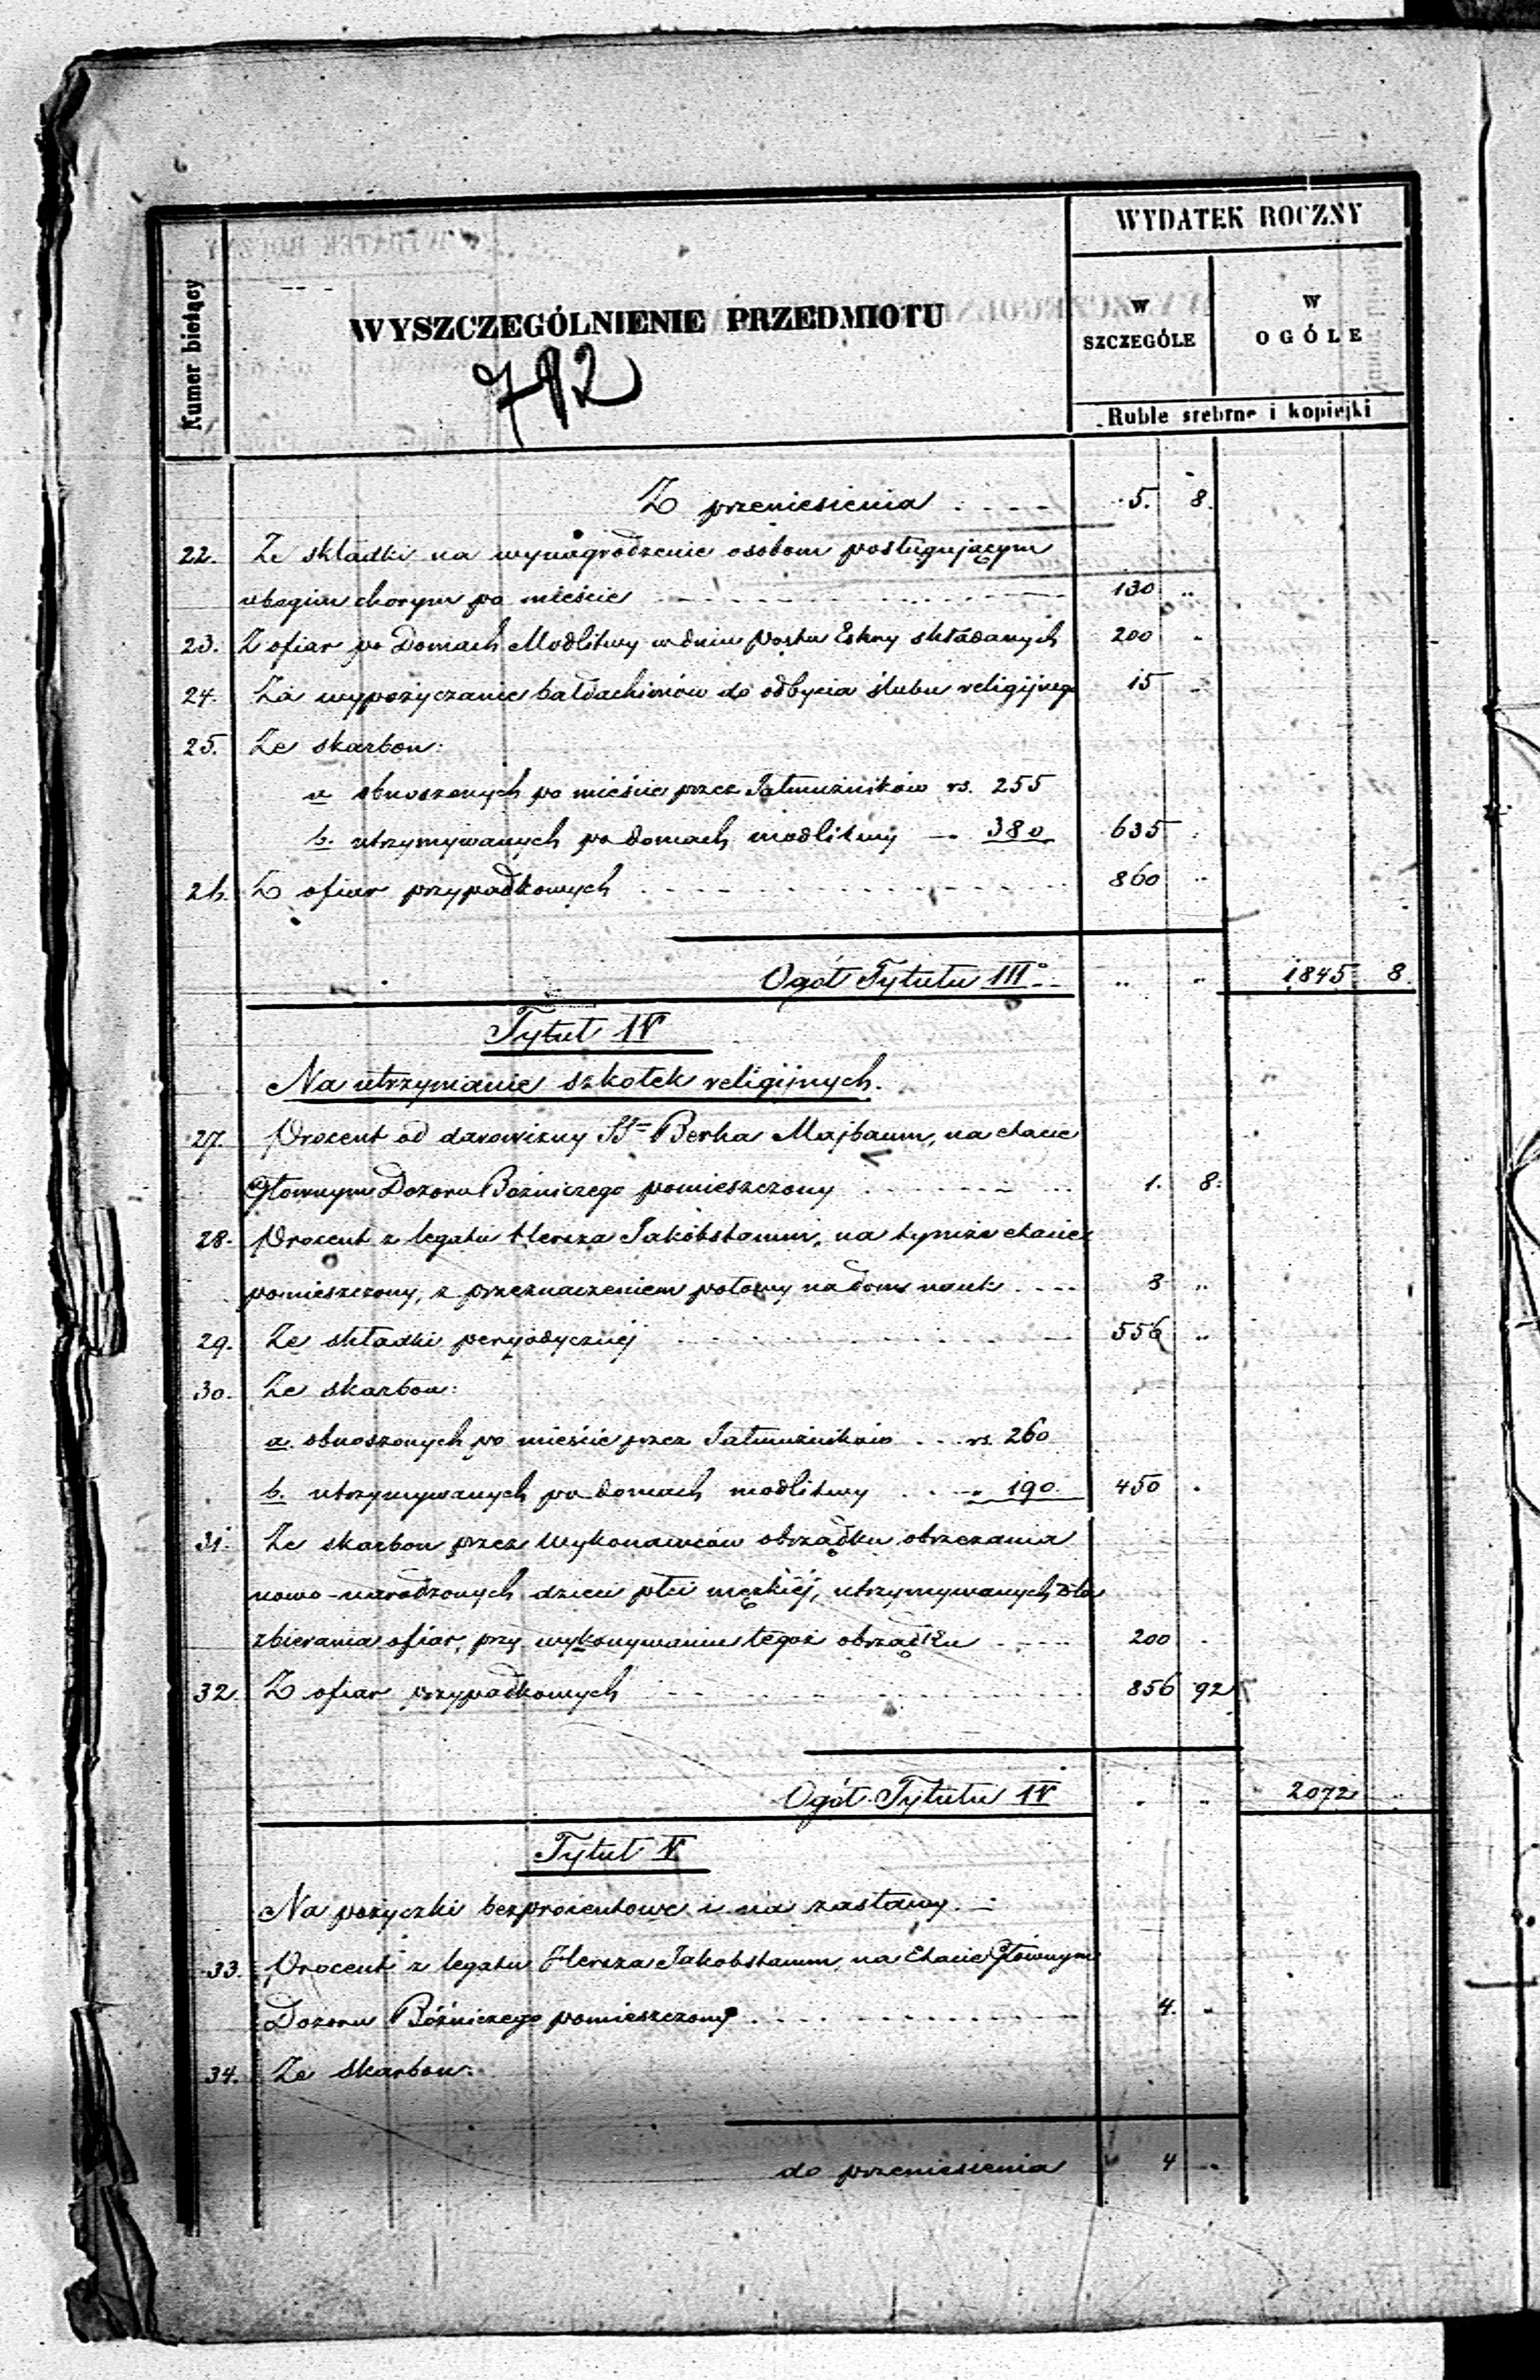 WYDATEK ROCZNY
Numer bieżący
WYSZCZEGÓLNIENIE PRZEDMIOTU
W SZCZEGÓLE
W OGÓLE
Ruble srebrne i kopiejki
792
Z przeniesienia . . . . 5. 8.
22. Ze składki na wynagrodzenie osobom posługującym
ubogim chorym po mieście 130 "
23. Z ofiar po Domach Modlitwy w dniu Postu Estery składanych 200 "
24. Za wypożyczanie baldachimów do odbycia ślubu religijnego 15 "
25. Ze skarbon:
a obnoszonych po mieście przez Jałmużników rs. 255
b. utrzymywanych po domach modlitwy — " 380 635
26. Z ofiar przypadkowych 860 "
Ogół Tytułu III° " " 1845 8.
Tytuł IV
Na utrzymanie szkółek religijnych.
27. Procent od darowizny Berka Majbaum, na etacie
Głównym Dozoru Bóźniczego pomieszczony 1. 8.
28. Procent z legatu Hersza Jakóbstamm, na tymże etacie
pomieszczony, z przeznaczeniem połowy na dom nauk 8 "
29. Ze składki peryodycznéj 556 "
30. Ze skarbon:
a. obnoszonych po mieście przez Jałmużników . . rs. 260
b. utrzymywanych po domach modlitwy . . " 190. 450 "
31. Ze skarbon przez wykonawców obrządku obrzezania
nowo-narodzonych dzieci płci męzkiéj, utrzymywanych dla
zbierania ofiar, przy wykonywaniu tegoż obrządku 200 "
32. Z ofiar przypadkowych 856 92
Ogół Tytułu IV " " 2072 "
Tytuł V.
Na pożyczki bezprocentowe i na zastawy.
33. Procent z legatu Hersza Jakobstamm, na Etacie Głównym
Dozoru Bóźniczego pomieszczony 4. "
34. Ze skarbon:
do przeniesienia 4 "